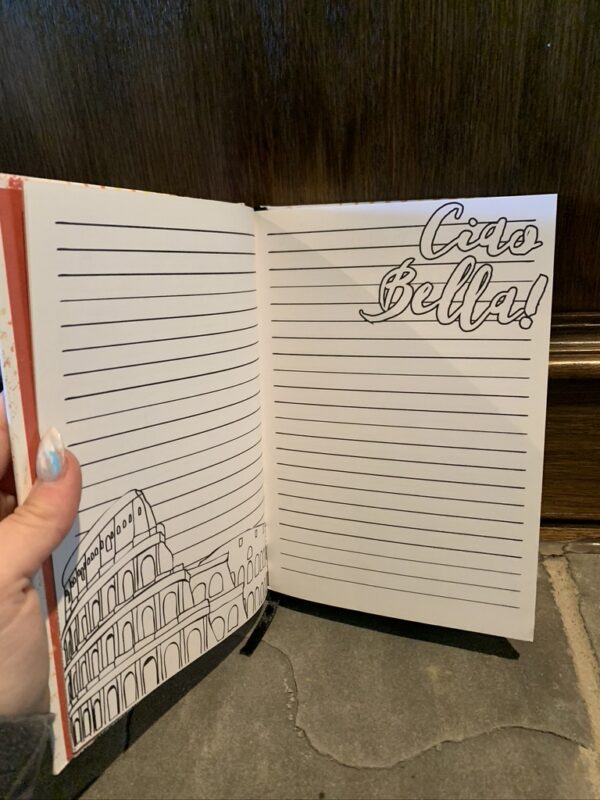 Ciao
Bella!